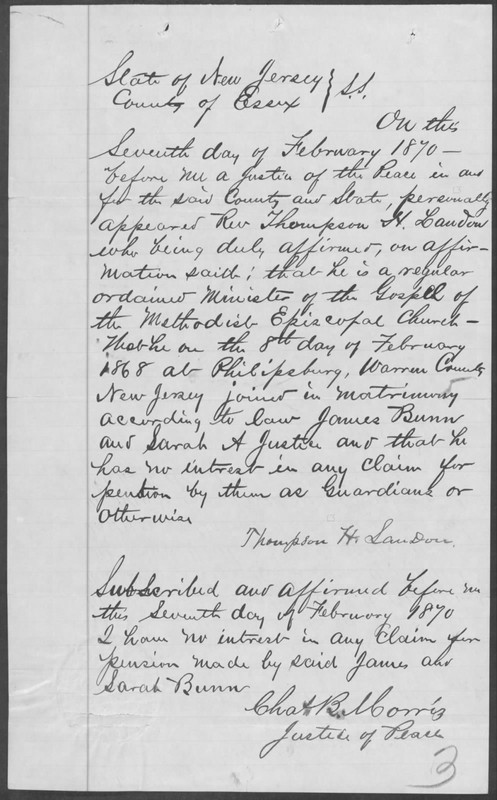 State of New Jersey } S.S.
County of Essex
On this
Seventh day of February 1870 —
before me a Justice of the Peace in and
for the said County and State, personally
appeared Rev Thompson H. Landon
who being duly affirmed, on affir-
mation saith; that he is a regular
ordained Minister of the Gospel of
the Methodist Episcopal Church —
That he on the 8th day of February
1868 at Philipsburg, Warren County
New Jersey joined in matrimony
according to law James Bunn
and Sarah A Justice and that he
has no intrest in any claim for
pention by them as Guardians or
otherwise
Thompson H. Landon.
Subscribed and affirmed before me
this Seventh day of February 1870
I have no intrest in any claim for
pension made by said James and
Sarah Bunn
Chas B. Morris
Justice of Peace
3